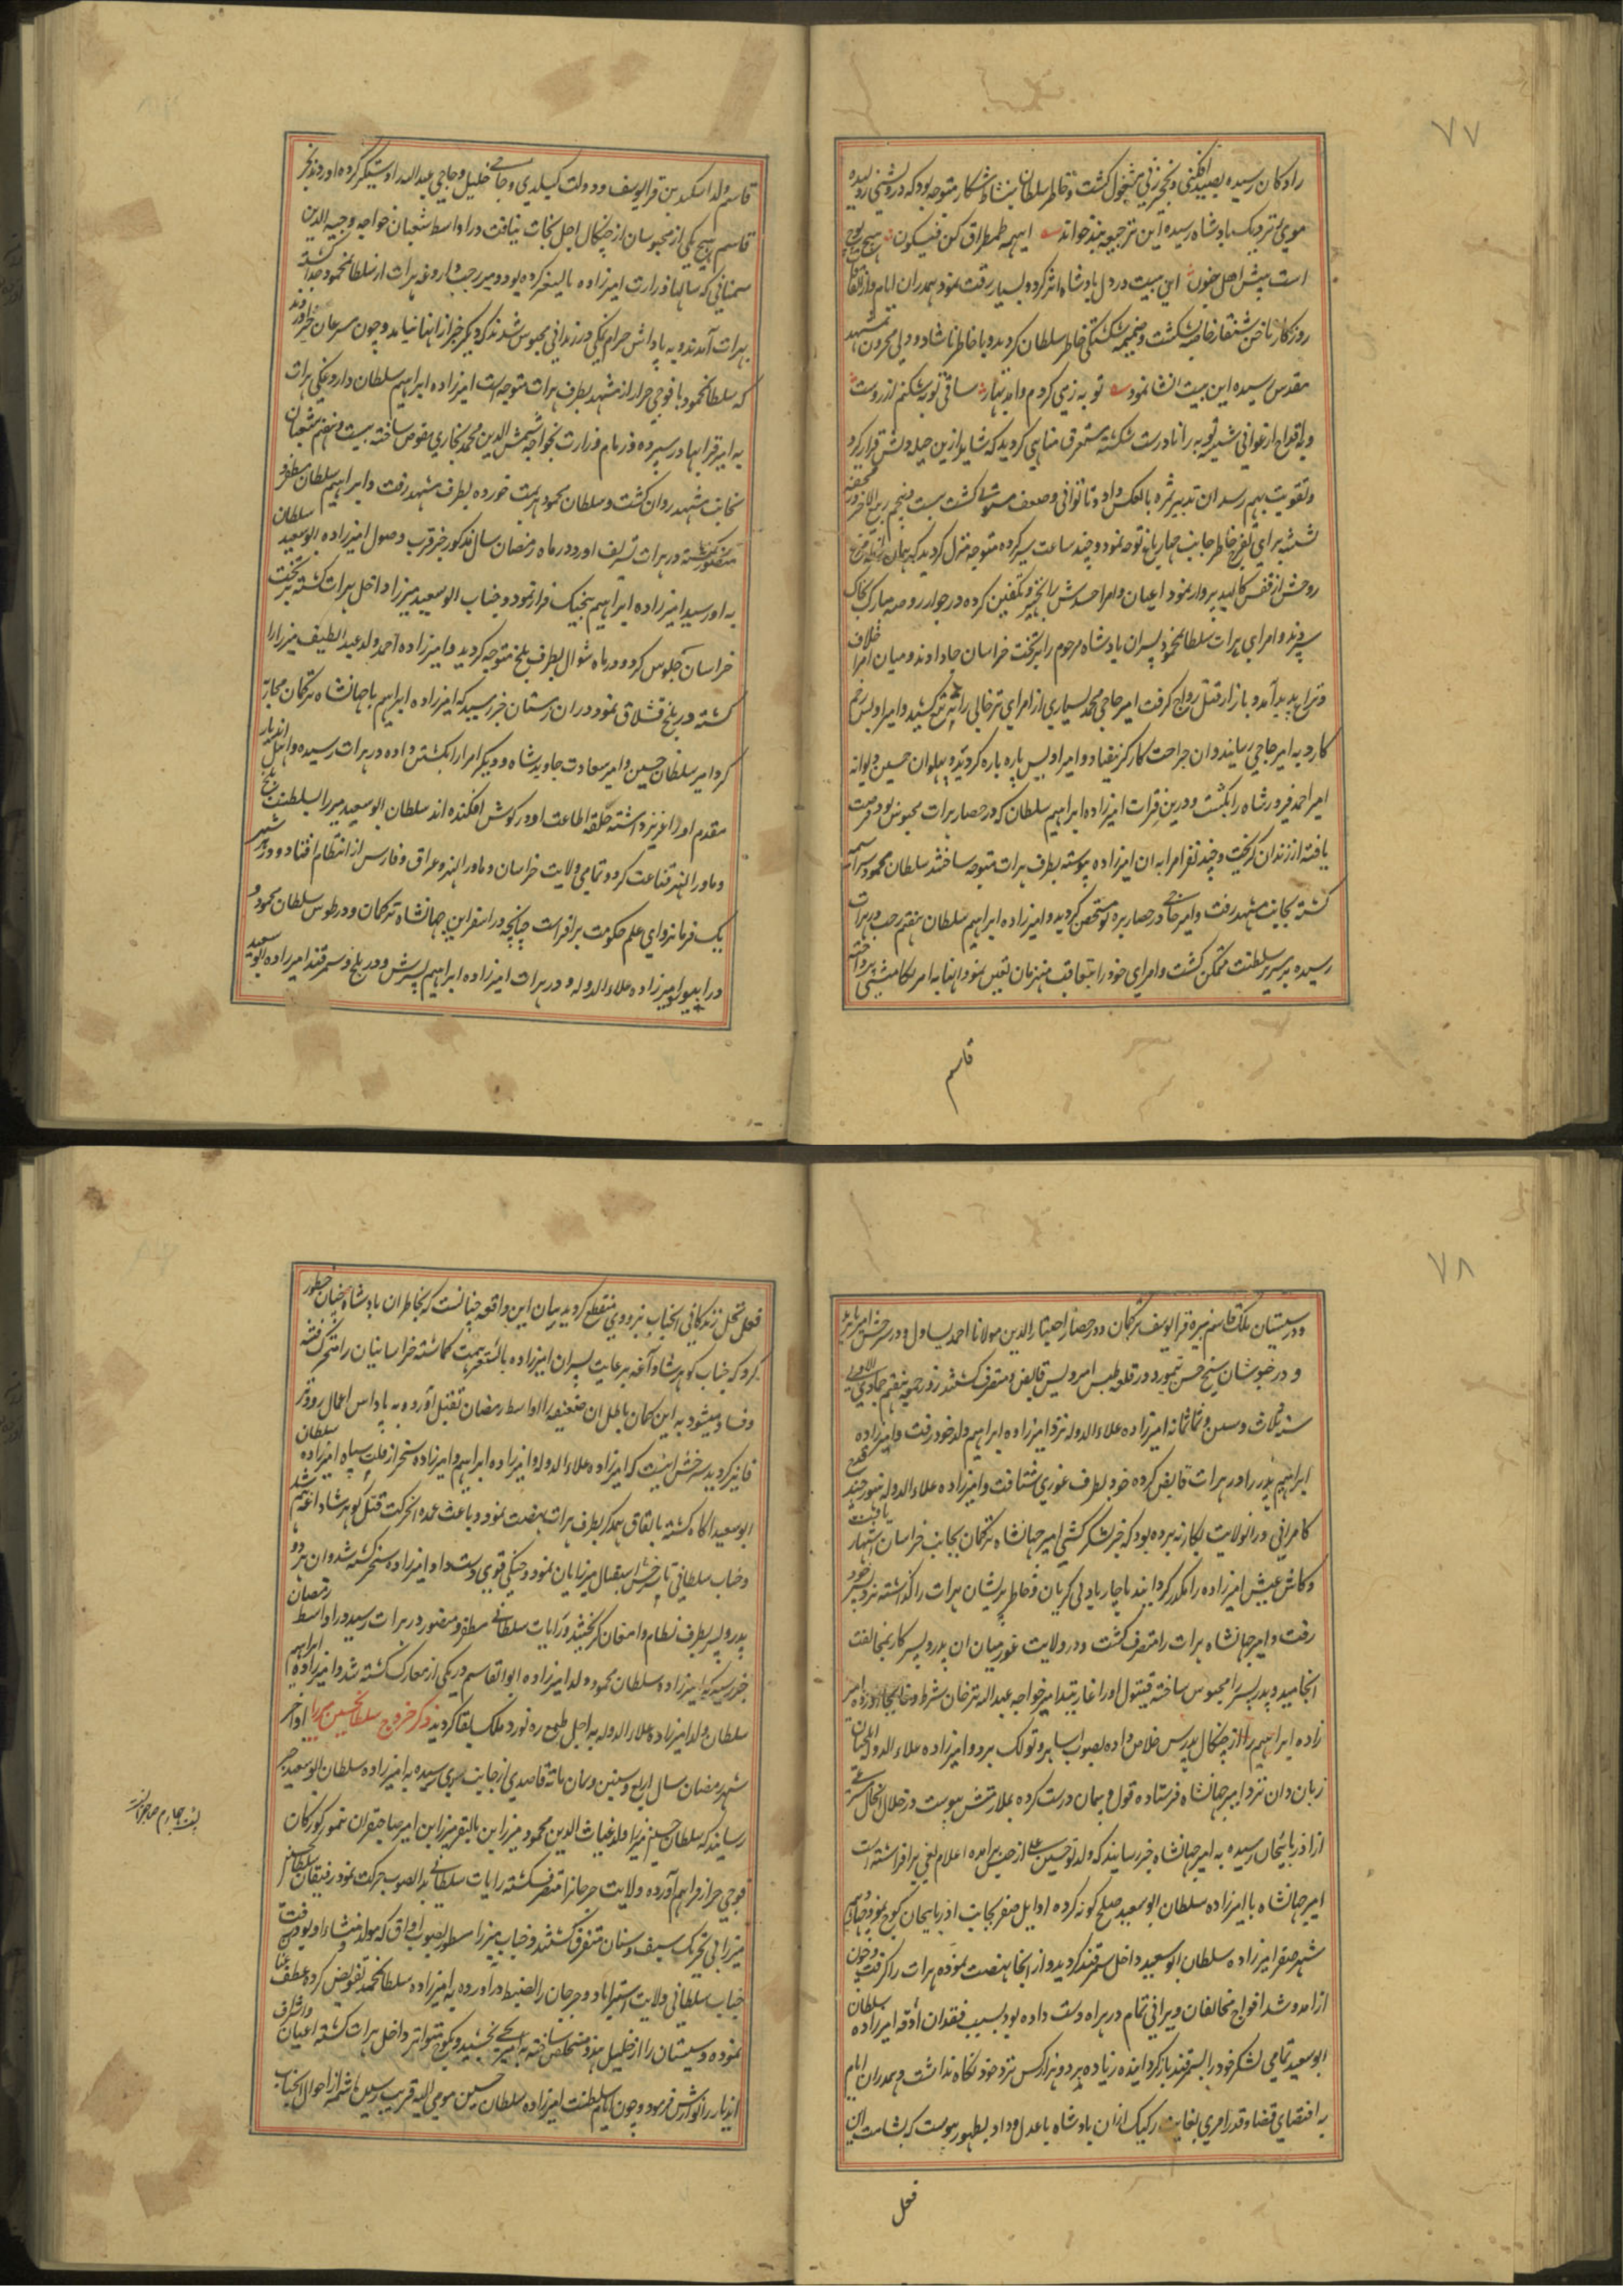 ۷۷
رادکان رسیده بصید افکنی و نخجیر زنی مشغول کشت و خاطر سلطان بنشاط شکار متوجه بود که درویشی ژولیده
موی نزدیک پادشاه رسیده این ترجیع بند خواند اینهمه طمطراق کن فیکون هیچ
است پیش اهل جنون این بیت در دل پادشاه اثر کرده بسیار رقت نمود همدران ایام
روزکار ناخن شنقار خاصه بشکست و ضمیمه شکستکی خاطر سلطان کردید و با خاطر ناشاد و دلی محزون بمشهد
مقدس رسیده این بیت انشا نمود توبه زمی کردم و آمد بهار ساقی توبه شکنم ارزوست
و باقداح ارغوانی شیشه توبه را نادرست شکسته مستغرق مناهی کردید که شاید ازین حیله دلش قرار کرد
و تقویت بهم رسد ان تدبیر ثمره بالعکس داد و ناتوانی و ضعف مستولی کشت بیست و پنجم ربیع الاخر در محفه
نشسته برای تفرج خاطر جانب چهارباغ توجه نمود و چند ساعت سیر کرده متوجه منزل کردید که همان
روحش از قفس کالبد پرواز نمود اعیان و امرا جسدش را تجهیز و تکفین کرده در جوار روضه مبارک بخاک
سپردند و امرای هرات سلطان محمود پسر ان پادشاه مرحوم را بر تخت خراسان جا دادند و میان امرا خلاف
و نزاع پدید آمد و بازار قتل رواج کرفت امیر حاجی محمد بسیاری از امرای ترخانی را کشید و امیر اویس زخم
کارد به امیر حاجی رسانید و ان جراحت کارکر نیفتاد و امیر اویس پاره پاره کردید و پهلوان حسین دیوانه
امیر احمد فیروزشاه را بکشت و درین فترات امیرزاده ابراهیم سلطان که در حصار هرات محبوس بود فرصت
یافته از زندان کریخت و چند نفر امرا به ان امیرزاده پیوسته بطرف هرات متوجه ساختند سلطان محمود سراسیمه
کشته بجانب مشهد رفت و امیر حاجی در حصار بره تو متحصن کردید و امیرزاده ابراهیم سلطان هفتم رجب در هرات
رسیده بر سریر سلطنت متمکن کشت و امرای خود را بتعاقب منهزمان تعین نمود و اینها به امیر
قاسم
قاسم ولد اسکندر بن قرا یوسف و دولت کیلدی و جانی خلیل و حاجی عبدالله را دستکیر کرده اوردند بجز
قاسم هیچ یکی از محبوسان از چنکال اجل نجات نیافت در اواسط شعبان خواجه وجیه الدین
سمنانی که سالها وزارت امیرزاده بایسنغر کرده بود و میر رجب داروغه هرات از سلطان محمود جدا کشته
بهرات آمدند و به پاداش حرام نمکی در زندانی محبوس شدند که دیکر خبر از انها نیامد و چون مسرعان خبر اوردند
که سلطان محمود با فوجی جرار از مشهد بطرف هرات متوجه است امیرزاده ابراهیم سلطان داروغکی هرات
به امیر قرا بهادر سپرده و زمام وزارت بخواجه شمس الدین محمد بخاری مفوض ساخته بیست و هفتم شعبان
بجانب مشهد روان کشت و سلطان محمود هزیمت خورده بطرف مشهد رفت و ابراهیم سلطان مظفر و
منصور کشته در هرات تشریف اورد و در ماه رمضان سال مذکور خبر قرب وصول امیرزاده سلطان ابوسعید
به او رسید امیرزاده ابراهیم بیجنک فرار نمود و جناب ابوسعید میرزا داخل هرات کشته بر تخت
خراسان جلوس کرد و در ماه شوال بطرف بلخ متوجه کردید و امیرزاده احمد ولد عبد الطیف میرزا را
کشته در بلخ قشلاق نمود دران زمستان خبر رسید که امیرزاده ابراهیم با جهانشاه ترکمان محاربه
کرد امیر سلطان حسین و امیر سعادت جاوید شاه و دیکر امرا را بکشتن داده در هرات رسیده و اهل اندیار
مقدم او را عزیز داشته حلقه اطاعت او در کوش افکنده اند سلطان ابوسعید میرزا بسلطنت بلخ
و ماورالنهر قناعت کرد و تمامی ولایت خراسان و ماورالنهر و عراق و فارس از انتظام افتاد و در هر شهر
یک فرمانروای علم حکومت بر افراشت چنانچه در اسفراین جهانشاه ترکمان و در طوس سلطان محمود و
در ابیورد امیرزاده علاء الدوله و در هرات امیرزاده ابراهیم پسرش و در بلخ و سمرقند امیرزاده ابو سعید
۷۸
و در سیستان ملک قاسم نبیره قرا یوسف ترکمان و در حصار اختیار الدین مولانا احمد یساول و در سرخس امیر
و در خبوشان شیخ حسن تیمور و در قلعه طبس امیر اویس قابض و متصرف کشتند روز جمعه هفتم جمادی الاولی
سنه ثلاث و ستین و ثمانمائه امیرزاده علاء الدوله نزد امیرزاده ابراهیم ولد خود رفت و امیرزاده
ابراهیم پدر را در هرات قابض کرده خود بطرف غوری شتافت و امیرزاده علاء الدوله هنوز چند
کامرانی در انولایت بکار نه برده بود که خبر لشکرکشی امیر جهانشاه ترکمان بجانب خراسان اشتهار یافت
و کاش عیش امیرزاده را مکدر کردانید ناچار با دلی کریان و خاطر پریشان هرات را کذاشته نزد پسر خود
رفت و امیر جهانشاه هرات را متصرف کشت و در ولایت غور میان ان پدر و پسر کار بمخالفت
انجامید و پدر پسر را محبوس ساخته
زاده ابراهیم را از چنکال پدرش خلاص داده بصوب و تولک برد و امیرزاده علاء الدوله ایلچیان
زبان دان نزد امیر جهانشاه فرستاده قول و پیمان درست کرده بملازمتش پیوست در خلال انحال
از اذربایجان رسیده به امیر جهانشاه خبر رسانیدند که ولد تو حسین علی از حبس برآمده اعلام بغی بر افراشته است
امیر جهانشاه با امیرزاده سلطان ابوسعید صلح کونه کرده اوایل صفر بجانب اذربایجان کوچ نمود
شهر صفر امیرزاده سلطان ابوسعید داخل سمرقند کردید و از انجا نهضت نموده هرات را کرفت و چون
از امد و شد افواج مخالفان ویرانی تمام در هرات دست داده بود بسبب فقدان اذقه امیرزاده سلطان
ابوسعید تمامی لشکر خود را بسمرقند باز کردانیده زیاده بر دو هزار کس نزد خود نکاه نداشت و همدران ایام
به اقتضای قضا و قدر امری بغایت رکیک ازان پادشاه با عدل و داد بظهور پیوست که بشامت ان
فعل
فعل نخل زندکانی انجناب بزودی منقطع کردید بیان این واقعه چنانست که بخاطر ان پادشاه چنان خطور
کرد که جناب کوهرشاد آغه برعایت پسران امیرزاده بایسنغر همت کماشته خراسانیان را محرک فتنه
و فساد میشود به این کمان باطل ان ضعیفه را اواسط رمضان بقتل آورده به پاداش اعمال زودتر
فایز کردید سرخش اینست که امیرزاده علاء الدوله و امیرزاده ابراهیم و امیرزاده سنجر از قلت سپاه امیرزاده سلطان
ابوسعید آکاه کشته باتفاق همدکر بطرف هرات نهضت نمود و باعث عمده این حرکت قتل کوهرشاد آغه هم شد
و جناب سلطانی تا سرخس استقبال میرزایان نمود و جنکی قوی دست داد امیرزاده سنجر کشته شد و ان هر دو
پدر و پسر بطرف بسطام و دامغان کریختند و رایات سلطانی مظفر و منصور در هرات رسید در اواسط رمضان
خبر رسید که امیرزاده سلطان محمود ولد امیرزاده ابوالقاسم در یکی از معارک کشته شد و امیرزاده ابراهیم
سلطان ولد امیرزاده علاء الدوله به اجل طبیعی ره نورد ملک بقا کردید ذکر خروج سلطان حسین میرزا اواخر
شهر رمضان سال اربع و ستین و ثمانمائة قاصدی از جانب سری رسیده به امیرزاده سلطان ابوسعید خبر
رسانید که سلطان حسین میرزا ولد غیاث الدین محمود میرزا بن بایقرا میرزا بن امیر صاحبقران تیمور کورکان
فوجی جرار فراهم آورده ولایت جرجان را متصرف کشته رایات سلطانی بدانصوب حرکت نمود رفیقان سلطان حسین
میرزا بی تحریک سیف و سنان متفرق کشتند و جناب میرزا
جناب سلطانی ولایت استراباد و جرجان را بضبط درآورده به امیرزاده سلطان محمد تفویض کرده عطف عنان
نموده و سیستان را از خلیل هندو مستخلص ساخته به امیر بخشید و بکوچ متواتر داخل هرات کشته اعیان و اشراف
اندیار را نوازش فرمود و چون ایام سلطنت امیرزاده سلطان حسین مومی الیه قریب رسید شمه از احوال انجناب